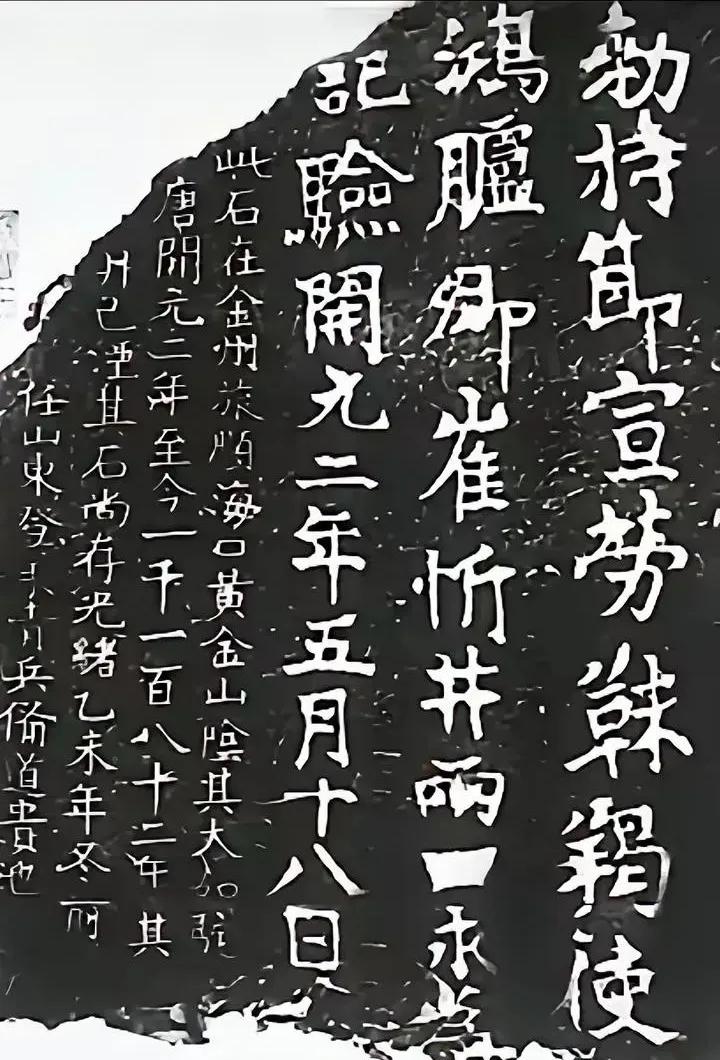 勅持節宣勞靺羯使
鴻臚卿崔忻井兩口永爲
記驗開元二年五月十八日
此石在金州旅順海口黃金山陰其大如駝
唐開元二年至今一千一百八十二年其
井已湮其石尚存光緒乙未年冬前
任山東登青兵備道貴池